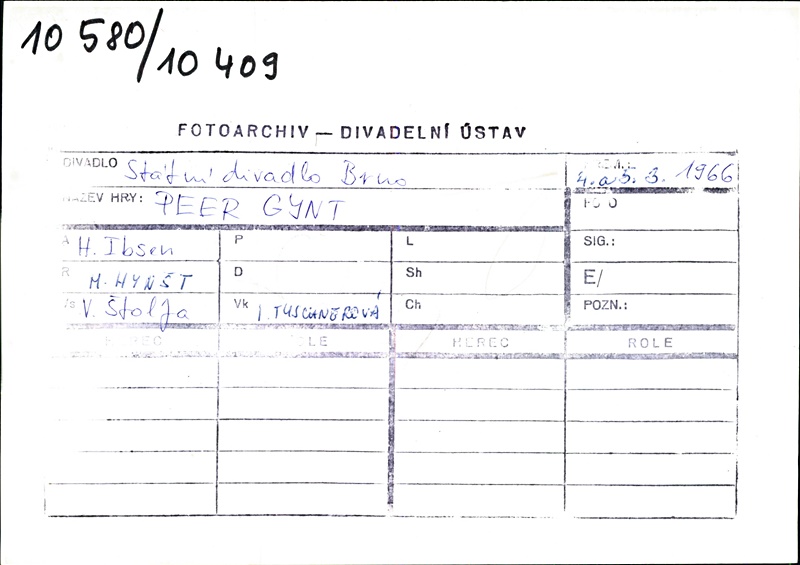 10 580/10 409
FOTOARCHIV — DIVADELNÍ ÚSTAV
DIVADLO Státní divadlo Brno
4. a 5. 3. 1966
NÁZEV HRY: PEER GYNT
FOTO
A H. Ibsen P L SIG.:
R M. HYNŠT D Sh E/
V/s V. Štolfa Vk I. TUSCHNEROVÁ Ch POZN.:
HEREC ROLE HEREC ROLE